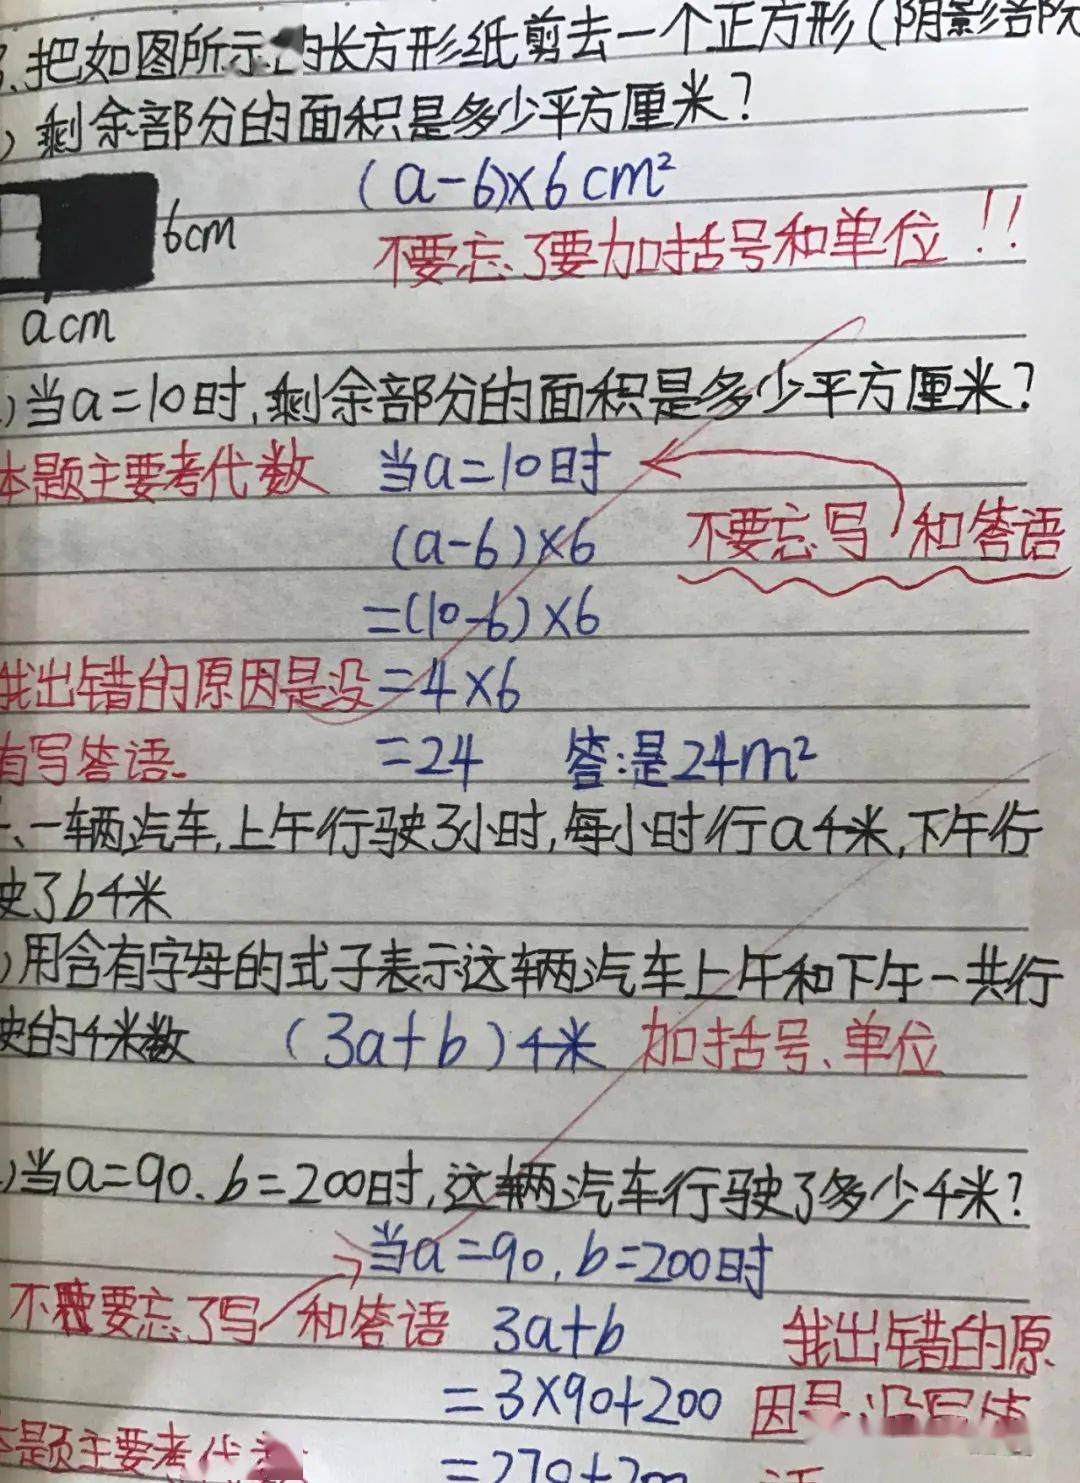 把如图所示的长方形纸剪去一个正方形(阴影部分
)剩余部分的面积是多少平方厘米?
(a-6)×6cm²
6cm
不要忘了要加括号和单位!!
acm
)当a=10时,剩余部分的面积是多少平方厘米?
本题主要考代数 当a=10时
(a-6)×6 不要忘写 和答语
=(10-6)×6
我出错的原因是没 =4×6
有写答语. =24 答:是24m²
一辆汽车,上午行驶3小时,每小时行a千米,下午行
驶了b千米
)用含有字母的式子表示这辆汽车上午和下午一共行
驶的千米数 (3a+b)千米 加括号、单位
)当a=90、b=200时,这辆汽车行驶了多少千米?
当a=90,b=200时
不要忘了写 和答语 3a+b 我出错的原
=3×90+200 因是没写答
本题主要考代 =270+200 语